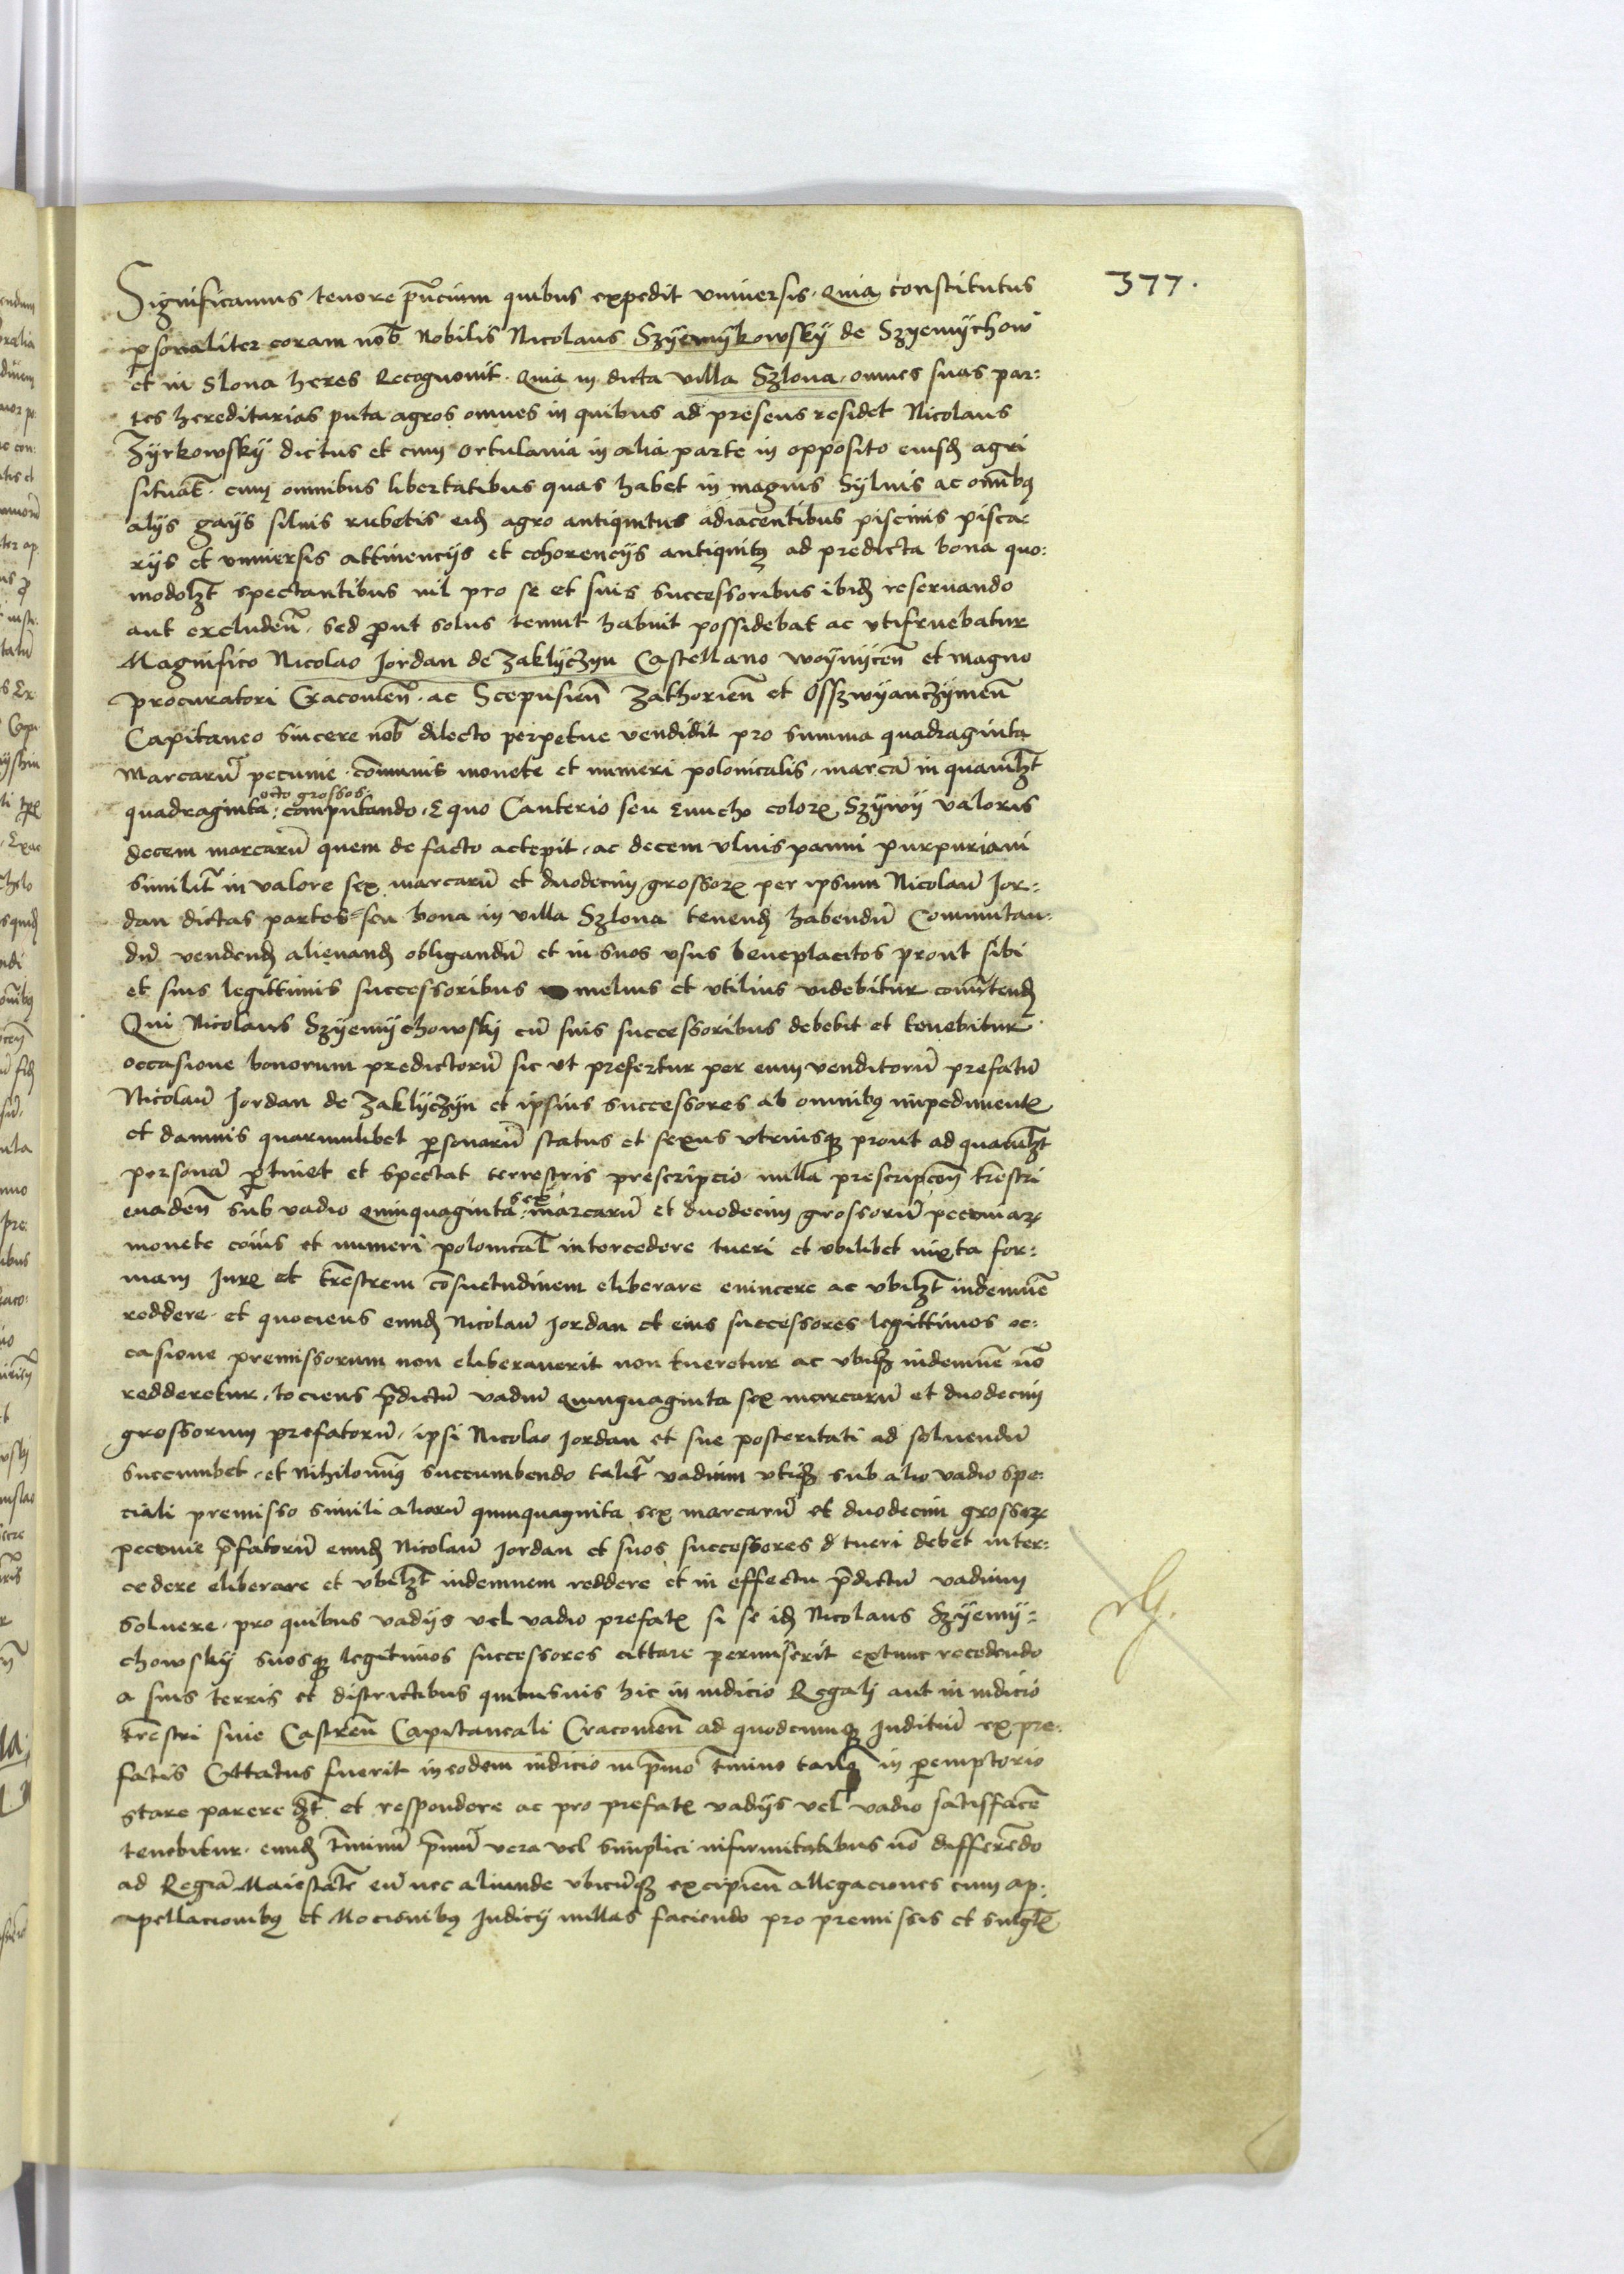 377.
Significamus tenore pñcium quibus expedit vniuersis. Quia constitutus
psonaliter coram nob̃ Nobilis Nicolaus Szÿemÿkowskÿ de Szyemÿchow
et in Slona heres Recognouit. Quia in dicta villa Szlona, omnes suas par:
tes hereditarias puta agros omnes in quibus ad presens residet Nicolaus
Zÿrkowskÿ dictus et cum ortulania in alia parte in opposito eiusd̃ agri
situat̃. cum omnibus libertatibus quas habet in magnis Syluis ac om̃ibꝫ
alÿs gaÿs siluis rubetis eid̃ agro antiquitus adiacentibus piscinis pisca:
rÿs et vniuersis attinencÿs et cohorencÿs antiquitꝫ ad predicta bona quo:
modolꝫt spectantibus nil pro se et suis successoribus ibid̃ reseruando
aut excluden̄. sed ꝓut solus tenuit habuit possidebat ac vtifruebatur
Magnifico Nicolao Jordan de Zaklÿczÿn Castellano woÿnÿcen̄ et magno
procuratori Cracouien̄. ac Scepusien̄ Zathorien̄ et Osszwÿanczÿmen̄
Capitaneo sincere nob̃ dilecto perpetue vendidit pro summa quadraginta
Marcarū pecunie. communis monete et numeri polonicalis, marcā in quamlꝫt
octo grossos.
quadraginta: computando. Equo Canterio seu Enucho colorꝭ Szÿwÿ valoris
decem marcarū quem de facto accepit, ac decem vlnis panni purpuriani
similit̃ in valore sex marcarū et duodecim grossorꝝ per ipsum Nicolaū Jor:
dan dictas partes seu bona in villa Szlona tenend̃ habendū Commutan:
dū vendend̃ alienand̃ obligandū et in suos vsus beneplacitos prout sibi
et suis legittimis successoribus melius et vtilius videbitur conūtend̃
Qui Nicolaus Szÿemÿchowskÿ cū suis successoribus debebit et tenebitur
occasione bonorum predictorū sic vt prefertur per eum venditorū prefatū
Nicolaū Jordan de Zaklÿczÿn et ipsius successores ab omnibꝫ impedimentꝭ
et damnis quarumlibet psonarū status et sexus vtriusqꝫ prout ad quamlꝫt
personā ptinet et spectat terrestris prescripcio. nulla prescripcōn tr̃estri
sex
euaden̄ sub vadio Quinquaginta: marcarū et duodecim grossorū pecuniarꝝ
monete cōis et numeri polonical̃ intercedere tueri et vbilibet iuxta for:
mam Jurꝭ et tr̃estrem cōsuetudinem eliberare euincere ac vbilꝫt indemnē
reddere. et quociens eund̃ Nicolaū Jordan et eius successores legittimos oc:
casione premissorum non eliberauerit non tueretur ac vbilꝫ indemnē nō
redderetur. tociens p̄dictū vadiū Quinquaginta sex marcarū et duodecim
grossorum prefatorū, ipsi Nicolao Jordan et sue posteritati ad soluendū
succumbet. et Nihilominꝰ succumbendo talit̃ vadium vtiqꝫ sub alio vadio spe:
ciali premisso simili aliarū quinquaginta sex marcarū et duodecim grossorꝝ
pecunie p̄fatorū eund̃ Nicolaū Jordan et suos successores d tueri debet inter:
cedere eliberare et vbilꝫt indemnem reddere et in effectu p̄dictū vadium
soluere. pro quibus vadÿs vel vadio prefatꝭ si se id̃ Nicolaus Szÿemÿ:
chowskÿ suosqꝫ legitimos successores cittare permiserit extunc recedendo
a suis terris et districtibus quibusuis hic in iudicio Regalj aut in iudicio
tr̃estri siue Castren̄ Capitaneali Cracouien̄ ad quodcumqꝫ Juditiū ex pre:
fatis Cittatus fuerit in eodem iudicio in p̄mo t̄mino tanqꝫ in peremptorio
stare parere dꝫt et respondere ac pro prefatꝭ vadÿs vel vadio satisfacē
tenebitur. eund̃ t̄minū p̄mū vera vel simplici infirmitatibus nō differēdo
ad Regiā Maiestatē eū nec aliunde vbicūqꝫ excipien̄ allegaciones cum ap:
pellacionibꝫ et Mocionibꝫ Judicÿ nullas faciendo pro premissis et sing̃lꝭ